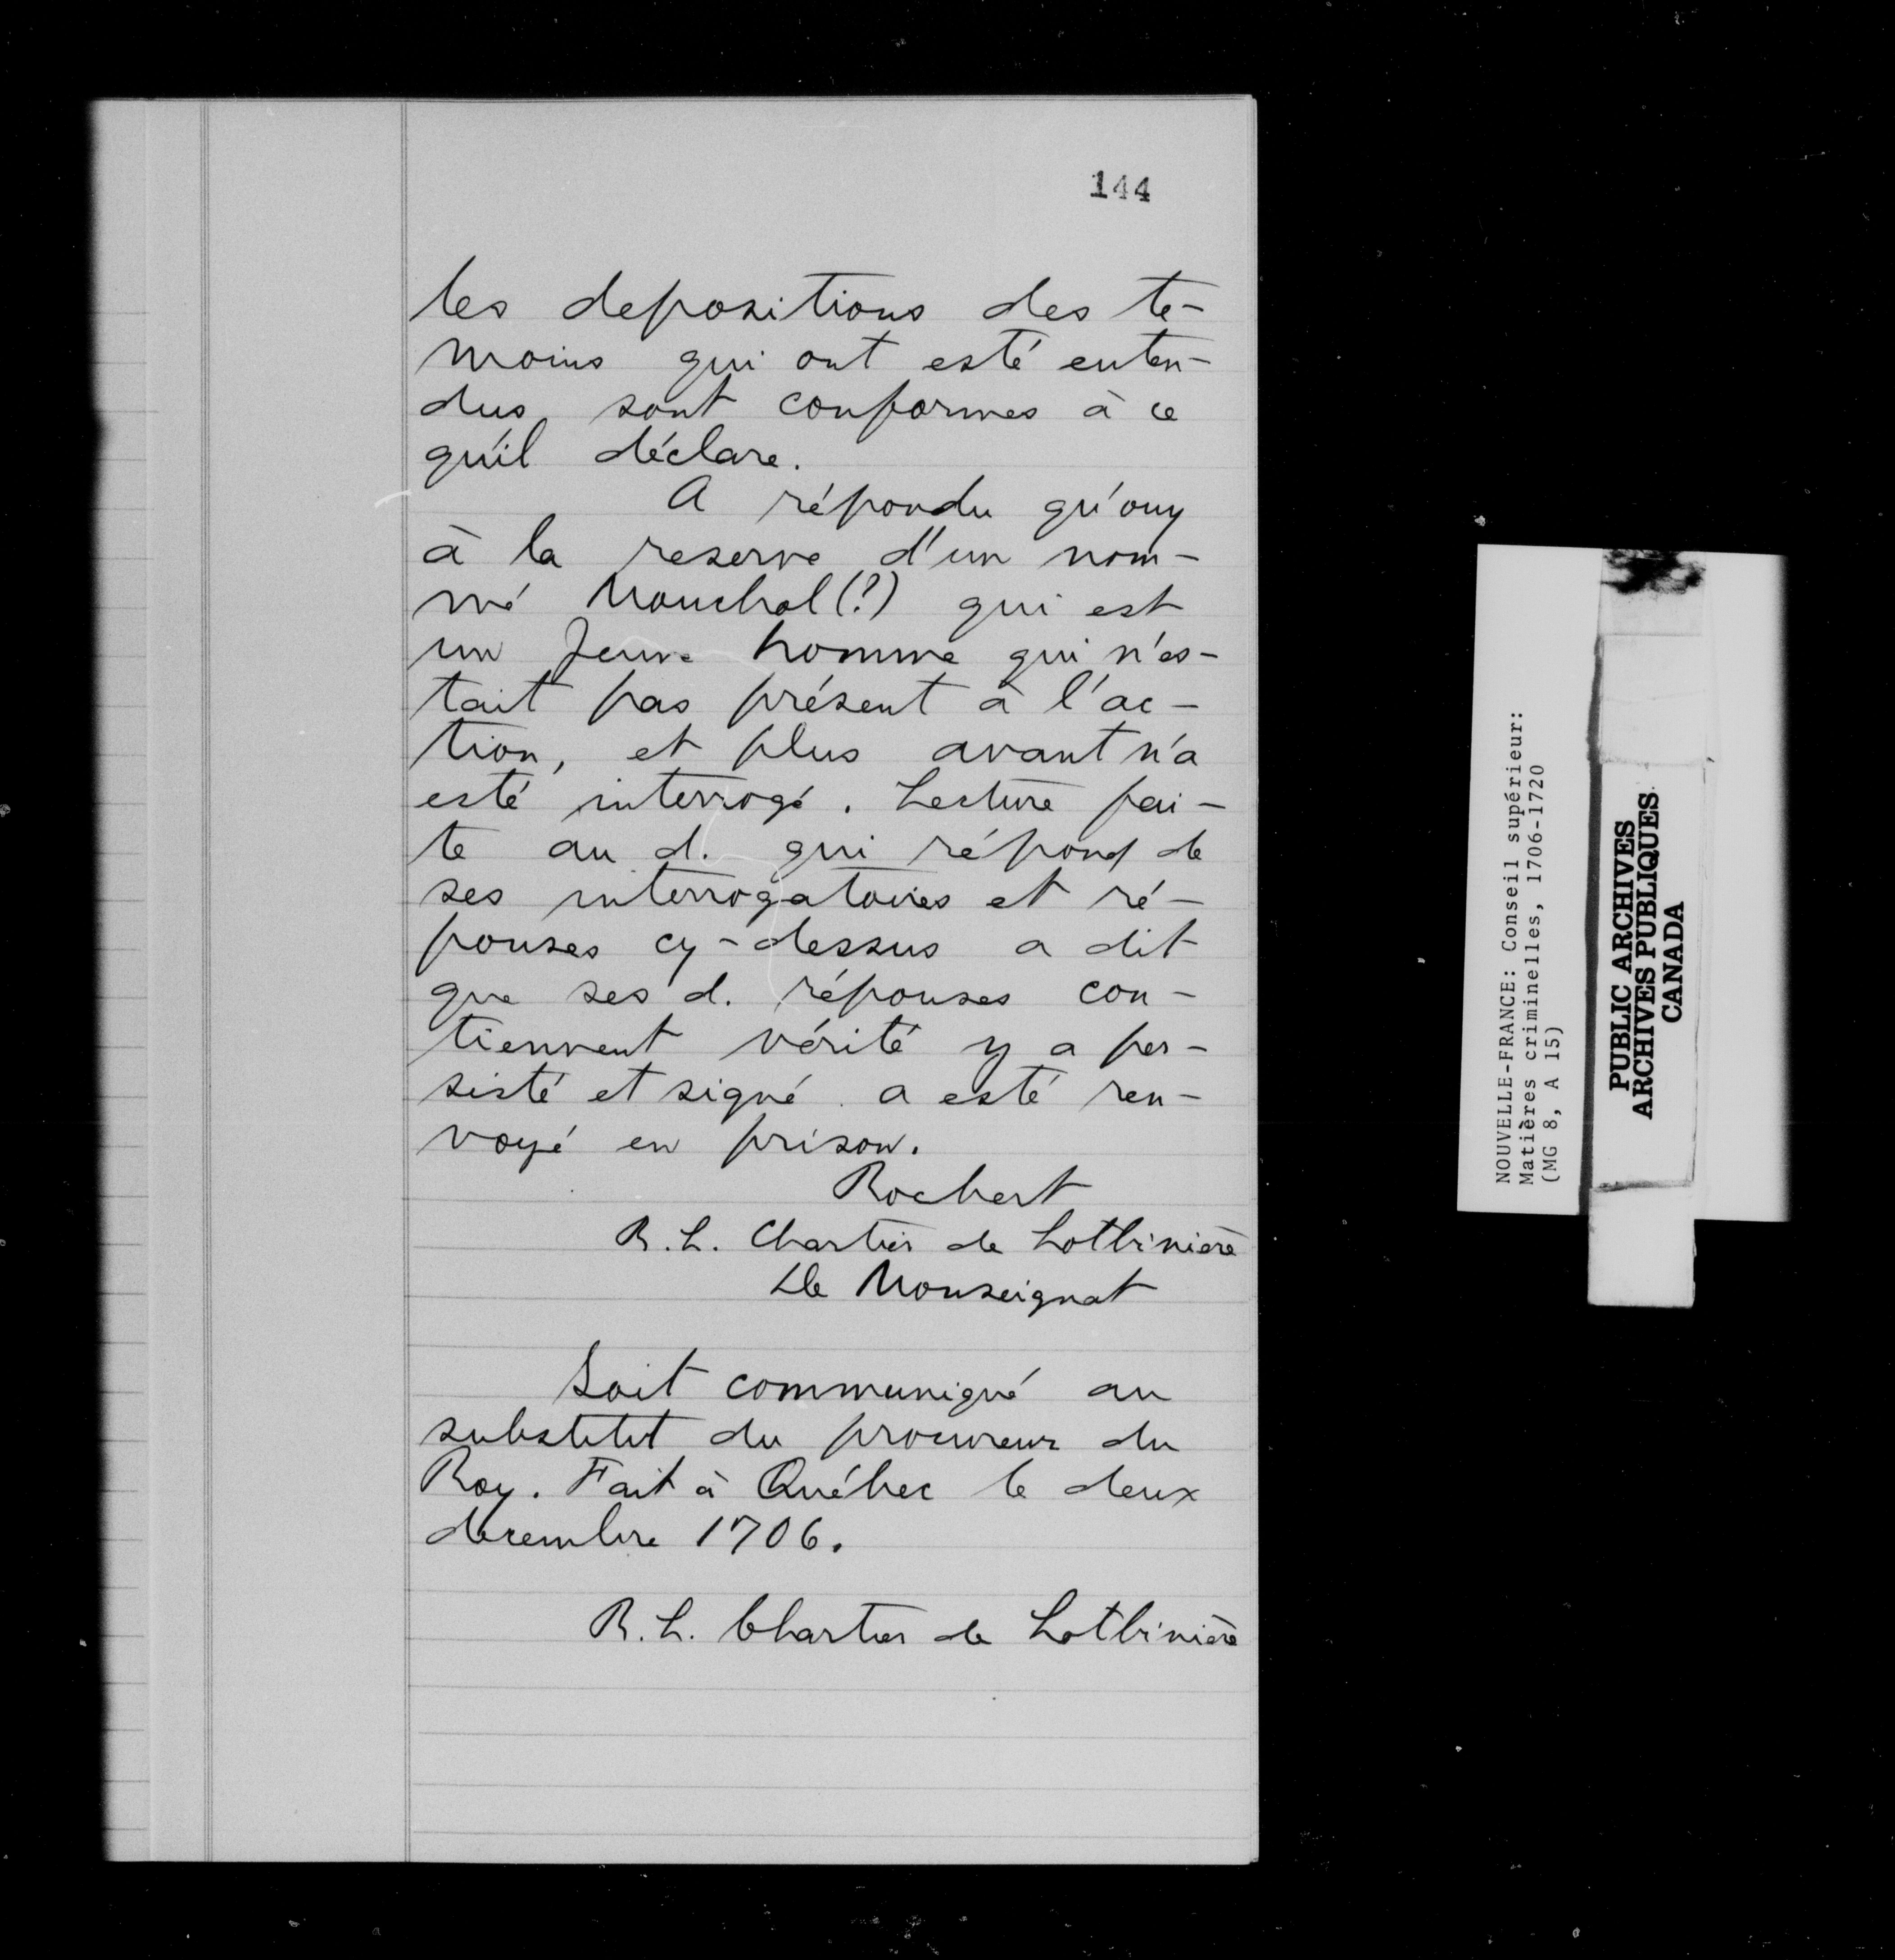 144
les depositions des te-
moins qui ont esté enten-
dus, sont conformes à ce
qu'il déclare.
A répondu qu'ouy
à la reserve d'un nom-
mé Mouchal (?) qui est
un Jeune homme qui n'es-
tait pas présent à l'ac-
tion, et plus avant n'a
esté interrogé. Lecture fai-
te au d. qui répond de
ses interrogatoires et ré-
ponses cy-dessus a dit
que ses d. réponses con-
tiennent vérité y a per-
sisté et signé. a esté ren-
voyé en prison.
Rochert
R. L. Chartier de Lotbinière
De Monseignat
Soit communiqué au
substitut du procureur du
Roy. Fait à Québec le deux
decembre 1706.
R. L. Chartier de Lotbinière
NOUVELLE-FRANCE: Conseil supérieur:
Matières criminelles, 1706-1720
(MG 8, A 15)
PUBLIC ARCHIVES
ARCHIVES PUBLIQUES
CANADA